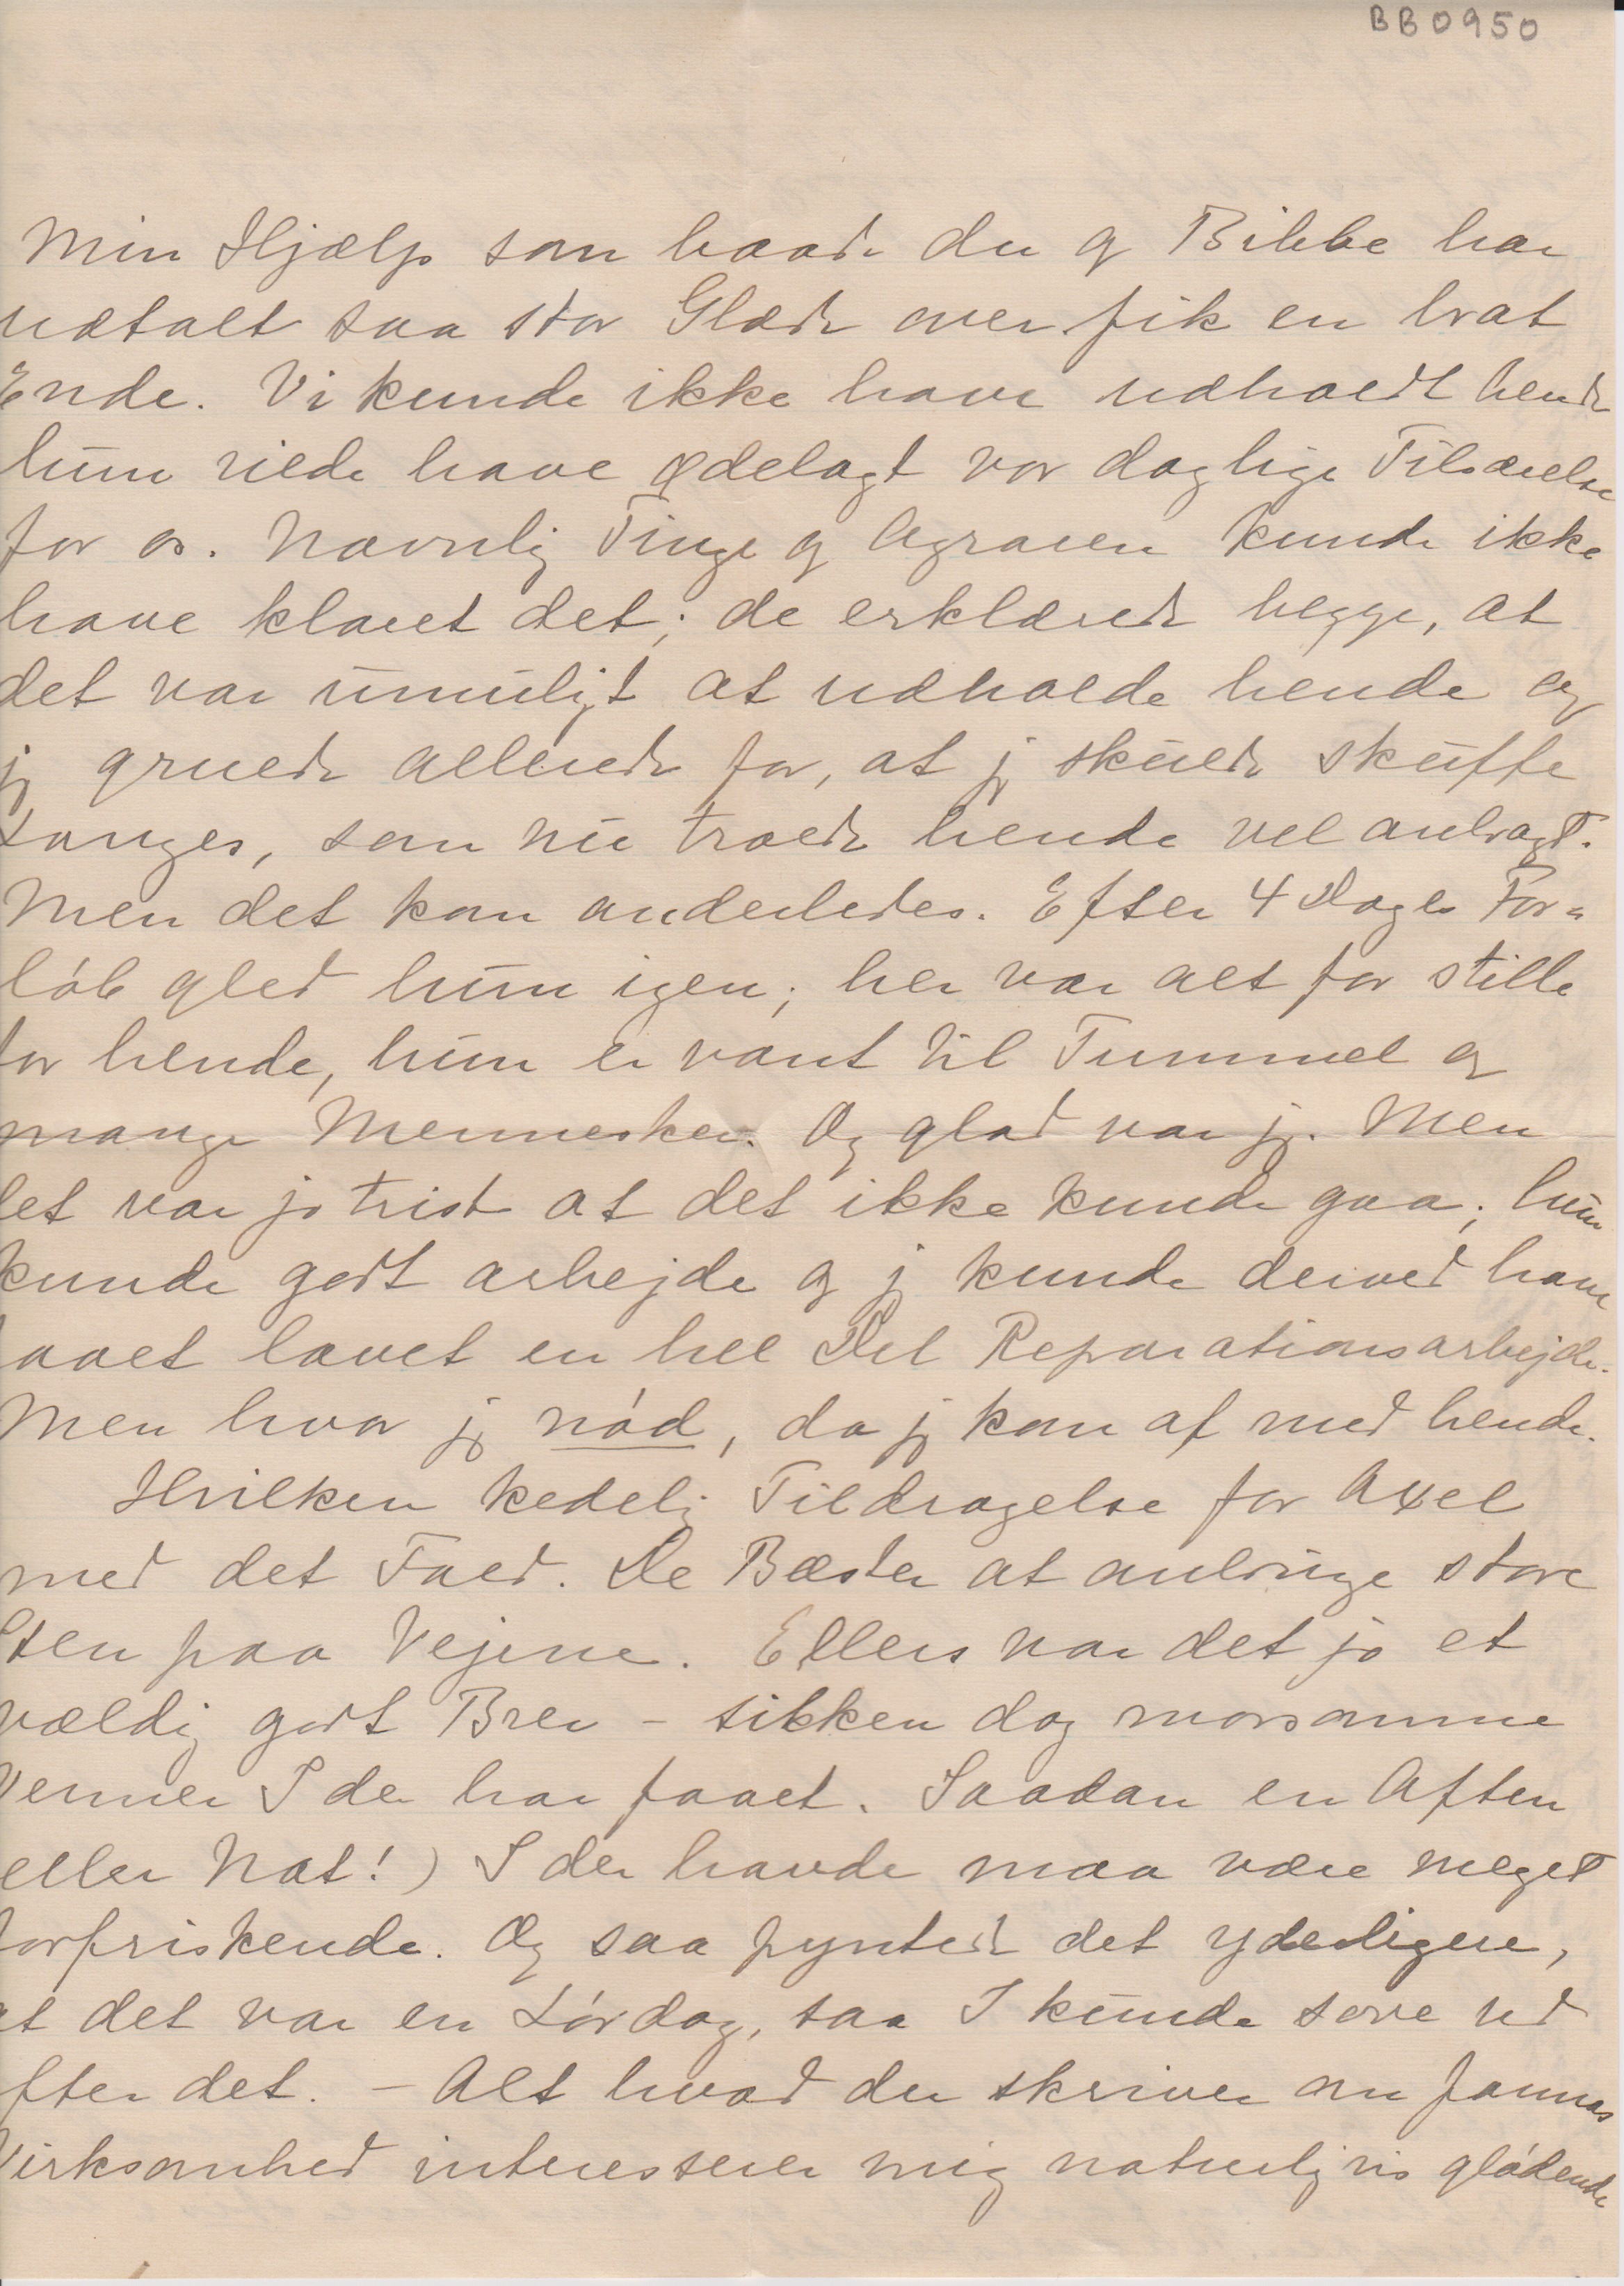 BB0950
Min Hjælp som baade du og Bibbe har
udtalt saa stor Glæde over fik en brat
Ende. Vi kunde ikke have udholdt hende
hun vilde have ødelagt vor daglige Tilværelse
for os. Navnlig Tinge og Agraren kunde ikke
have klaret det; de erklærede begge, at
det var umuligt at udholde hende og
jeg gruede allerede for, at jeg skulde skuffe
Langes, som nu troede hende vel anbragt.
Men det kom anderledes. Efter 4 Dages For=
løb gled hun igen; her var alt for stille
for hende, hun er vant til Tummel og
mange Mennesker. Og glad var jeg. Men
det var jo trist at det ikke kunde gaa; hun
kunde godt arbejde og jeg kunde derved have
faaet lavet en hel Del Reparationsarbejde.
Men hvor jeg nød, da jeg kom af med hende.
Hvilken kedelig Tildragelse for Axel
med det Fald. De Bæster at anbringe store
Sten paa Vejene. Ellers var det jo et
vældig godt Brev - sikken dog morsomme
Venner I der har faaet. Saadan en Aften
eller Nat!) I der havde maa være meget
forfriskende. Og saa pyntede det yderligere,
at det var en Lørdag, saa I kunde sove ud
efter det. - Alt hvad du skriver om Jannas
Virksomhed interesserer mig naturligvis glødende